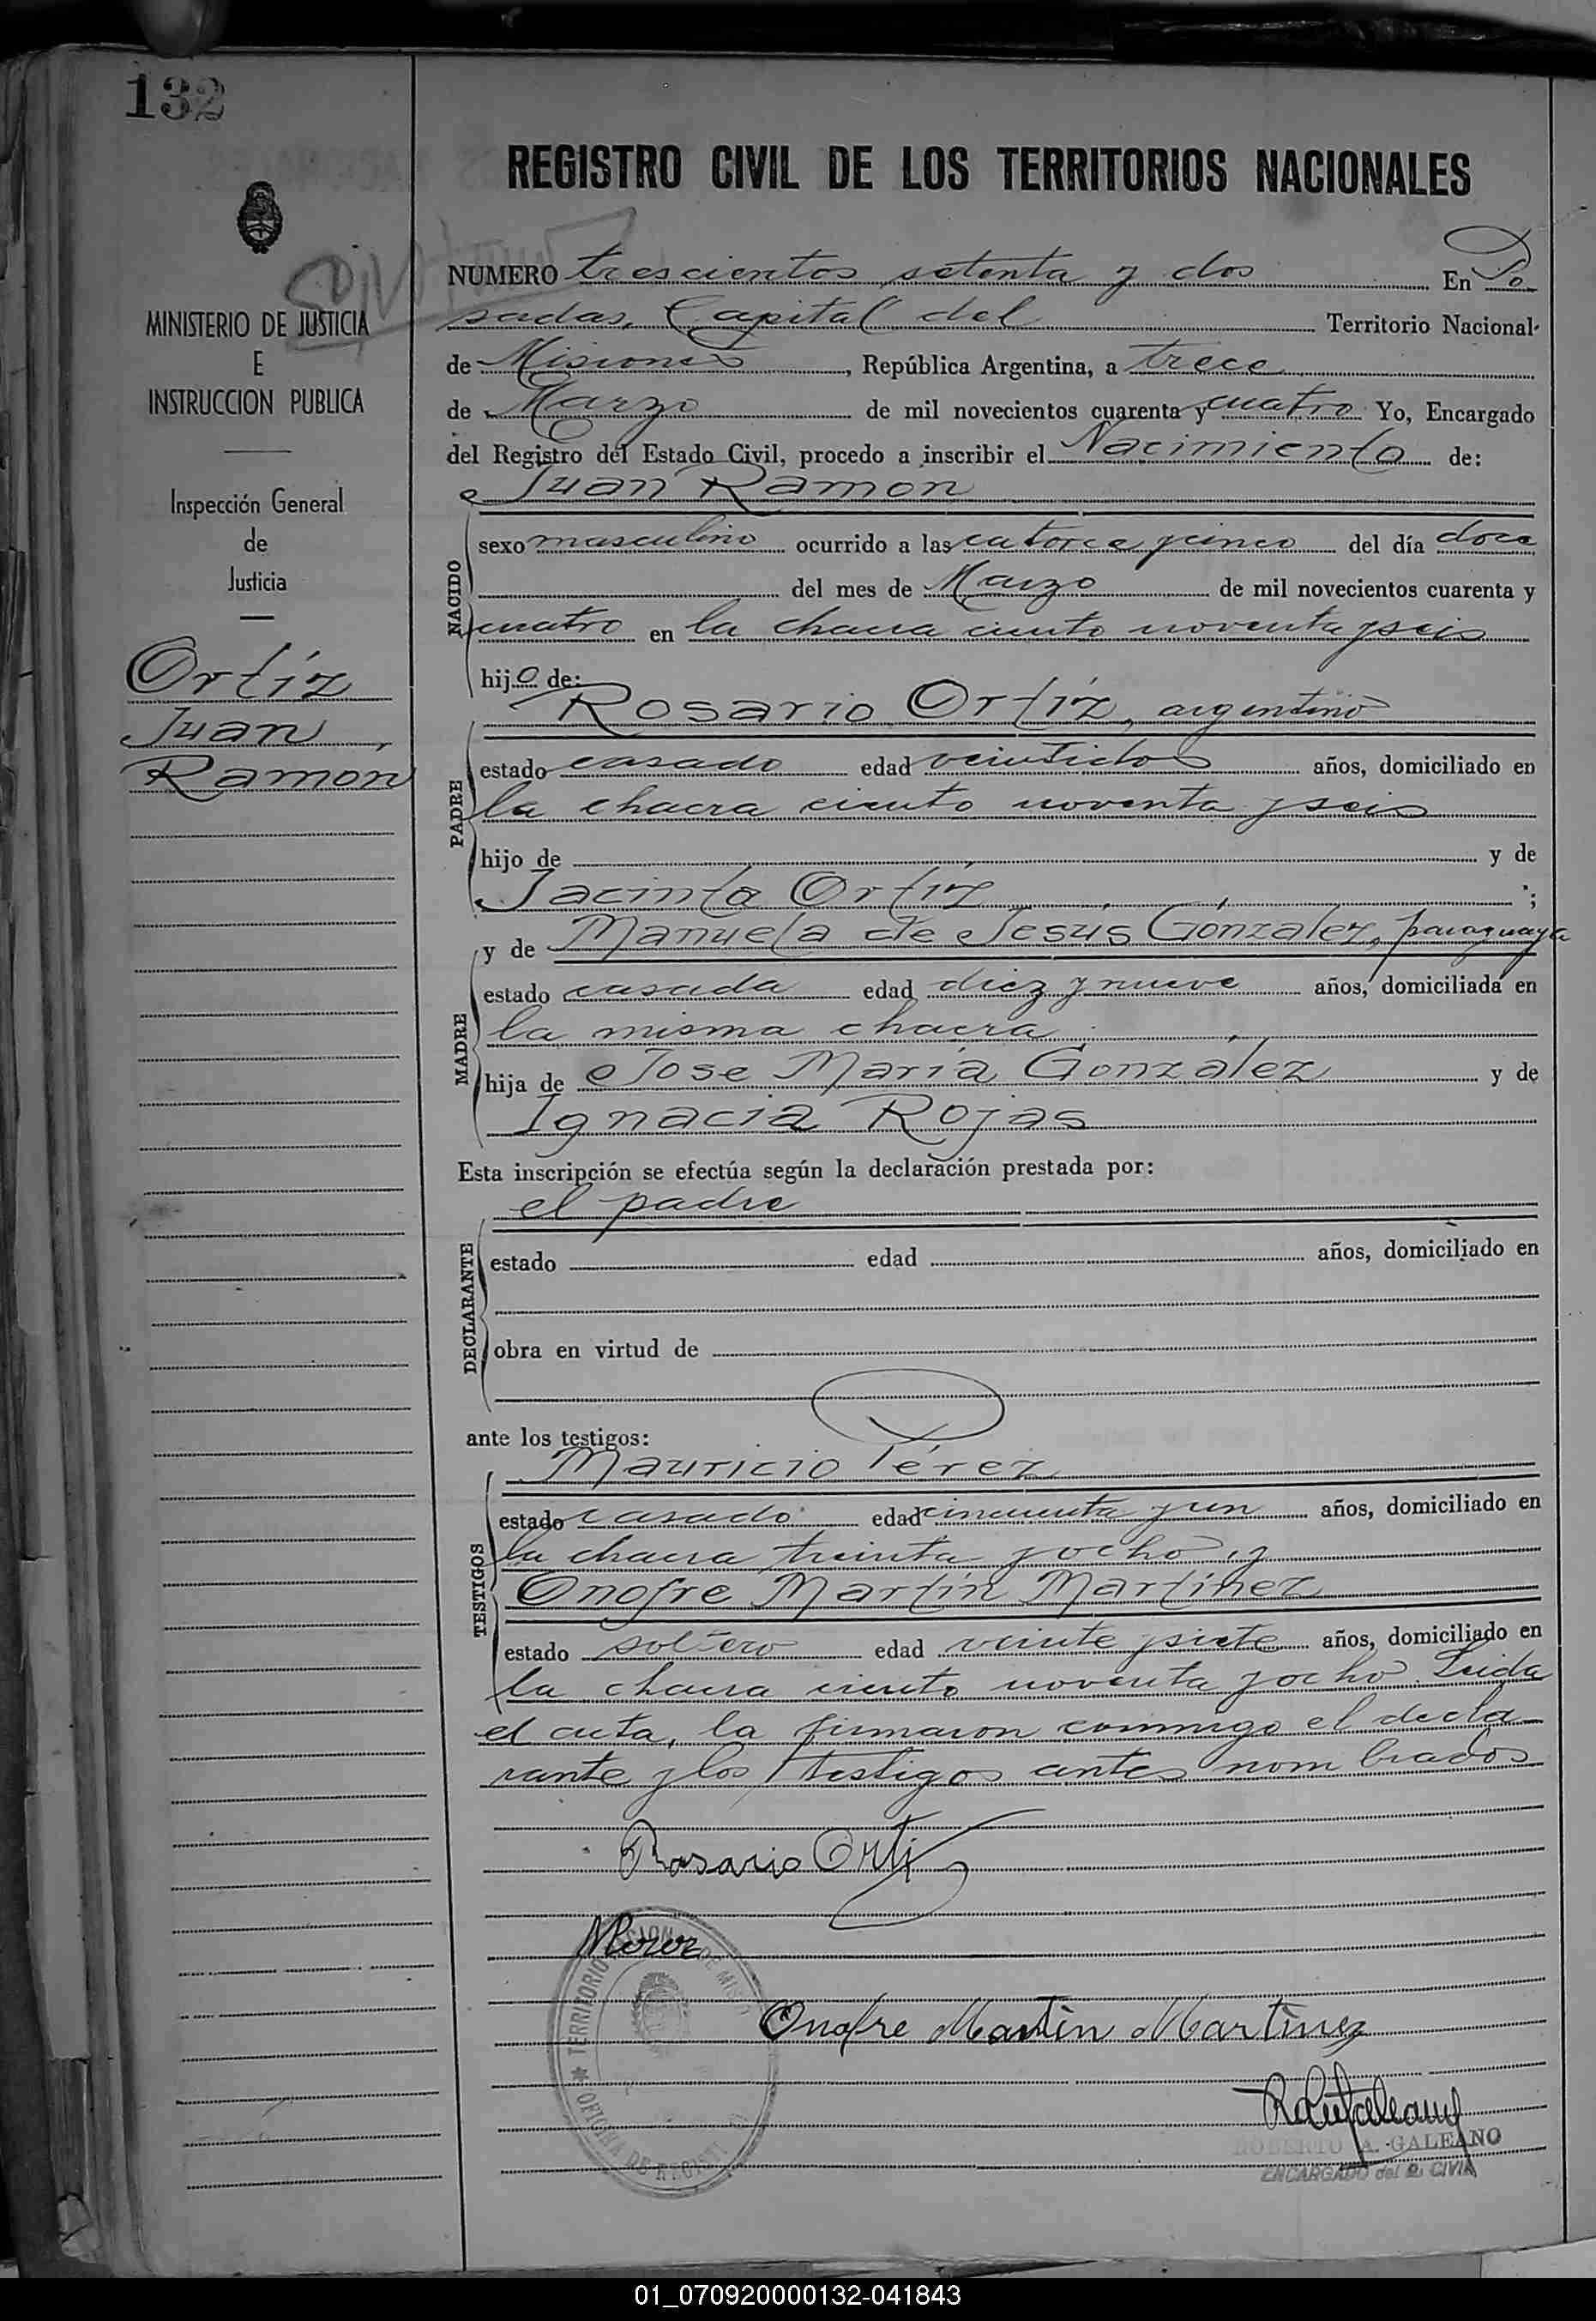 132
REGISTRO CIVIL DE LOS TERRITORIOS NACIONALES
MINISTERIO DE JUSTICIA
E
INSTRUCCION PUBLICA
Inspección General
de
Justicia
Ortíz
Juan
Ramón
NUMERO trescientos setenta y dos En Po-
sadas, Capital del Territorio Nacional
de Misiones, República Argentina, a trece
de Marzo de mil novecientos cuarenta y cuatro Yo, Encargado
del Registro del Estado Civil, procedo a inscribir el Nacimiento de:
Juan Ramon
NACIDO
sexo masculino ocurrido a las catorce y cinco del día doce
del mes de Marzo de mil novecientos cuarenta y
cuatro en la chacra ciento noventa y seis
hijo de:
Rosario Ortíz, argentino
PADRE
estado casado edad veintidos años, domiciliado en
la chacra ciento noventa y seis
hijo de y de
Jacinta Ortíz ;
y de Manuela de Jesús Gónzalez, paraguaya
MADRE
estado casada edad diez y nueve años, domiciliada en
la misma chacra
hija de Jose María González y de
Ignacia Rojas
Esta inscripción se efectúa según la declaración prestada por:
el padre
DECLARANTE
estado edad años, domiciliado en
obra en virtud de
ante los testigos:
Mauricio Pérez
TESTIGOS
estado casado edad cincuenta y un años, domiciliado en
la chacra treinta y ocho, y
Onofre Martín Martínez
estado soltero edad veinte y siete años, domiciliado en
la chacra ciento noventa y ocho. Leida
el acta, la firmaron conmigo el decla-
rante y los testigos antes nombrados
Rosario Ortiz
MPerez
Onofre Martin Martinez
TERRITORIO DE MISIONES
OFICINA DE REGIST
ROBERTO A. GALEANO
ENCARGADO del R. CIVIL
01_070920000132-041843